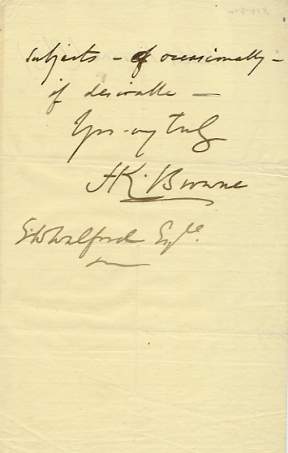 subjects – & occasionally –
if desirable –
Yrs. very truly
HK. Browne
E Walford Esqre.